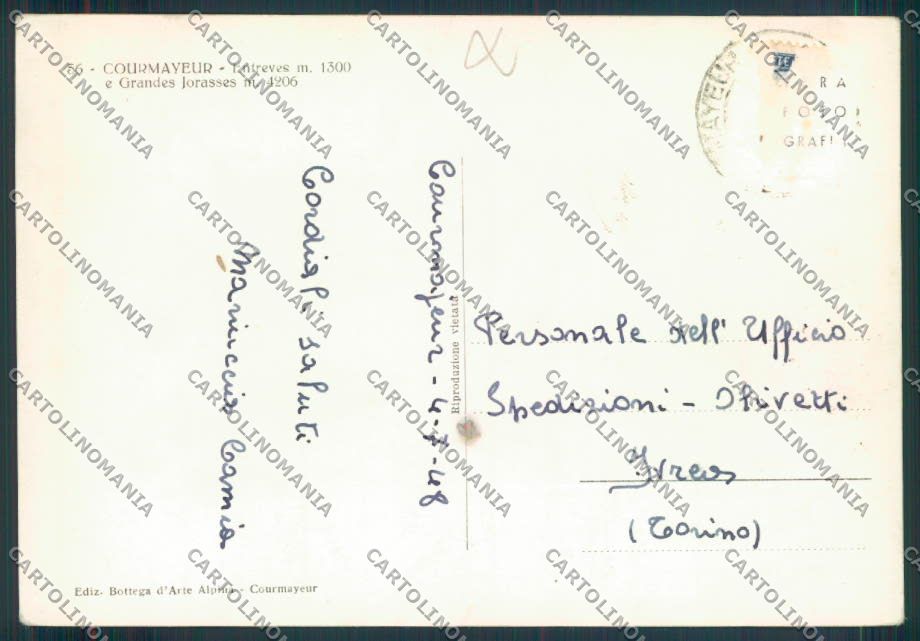 56 - COURMAYEUR - Entreves m. 1300
e Grandes Jorasses m. 4206
RA
FOTO
GRAFI
Courmayeur - 4-7-48
Cordiali saluti
Mariuccia Camia
Riproduzione vietata
Personale dell' Ufficio
Spedizioni - Olivetti
Ivrea
(Torino)
Ediz. Bottega d'Arte Alpina - Courmayeur
CARTOLINOMANIA